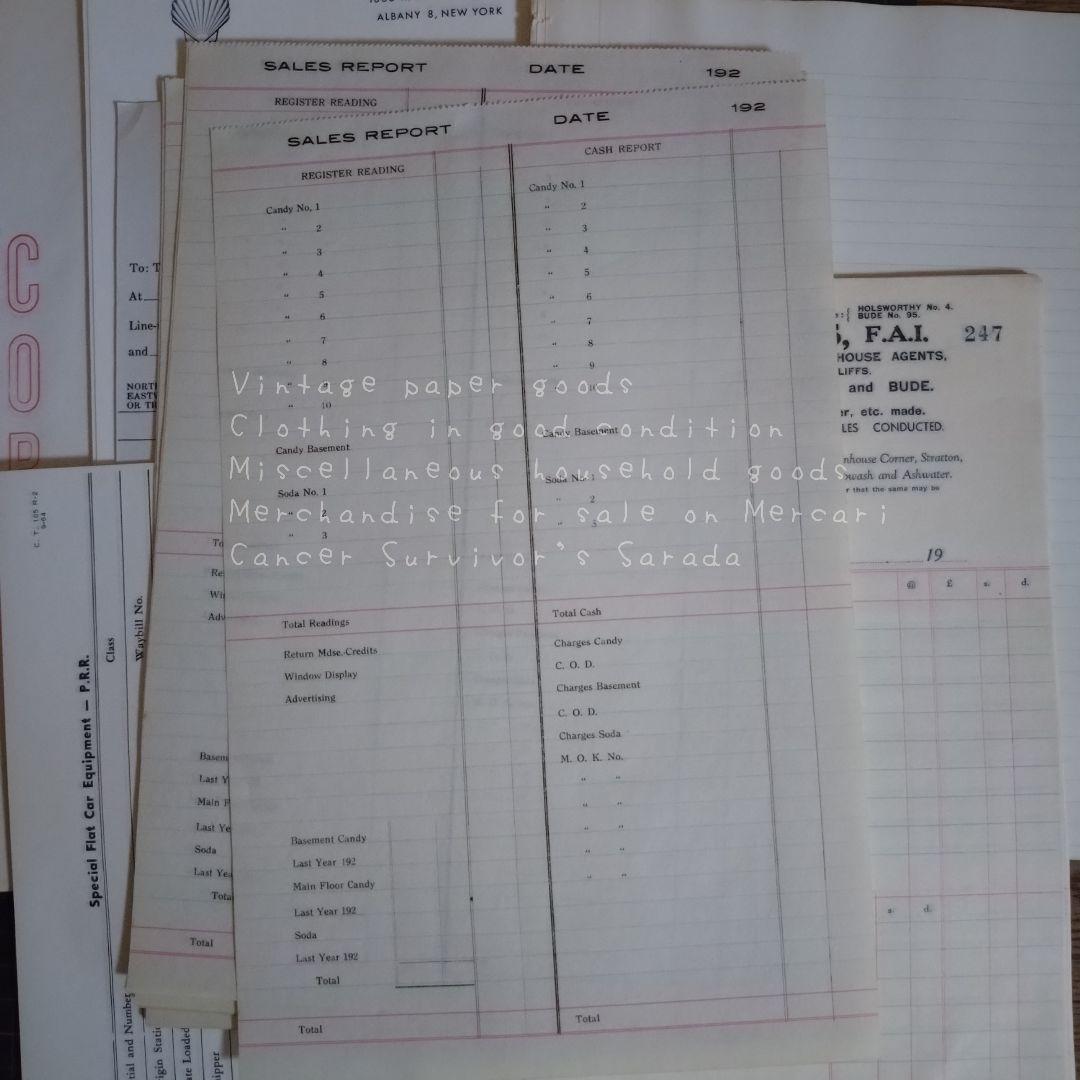 ALBANY 8, NEW YORK
SALES REPORT DATE 192
REGISTER READING
SALES REPORT DATE 192
REGISTER READING CASH REPORT
Candy No. 1 Candy No. 1
" 2 " 2
" 3 " 3
" 4 " 4
" 5 " 5
" 6 " 6
" 7 " 7
" 8 " 8
" 9 " 9
" 10 " 10
Candy Basement Candy Basement
Soda No. 1 Soda No. 1
" 2 " 2
" 3 " 3
Total Readings Total Cash
Return Mdse.-Credits Charges Candy
Window Display C. O. D.
Advertising Charges Basement
C. O. D.
Charges Soda
M. O. K. No.
" "
" "
" "
" "
" "
Basement Candy
Last Year 192
Main Floor Candy
Last Year 192
Soda
Last Year 192
Total
Total Total
Vintage paper goods
Clothing in good condition
Miscellaneous household goods
Merchandise for sale on Mercari
Cancer Survivor's Sarada
C O D
To:
At
and
OR
Soda
Total
C. T. 105 R-2
9-64
Special Flat Car Equipment — P.R.R.
Class
Waybill No.
and Number
Loaded
HOLSWORTHY No. 4.
BUDE No. 95.
F.A.I. 247
HOUSE AGENTS,
and BUDE.
etc. made.
CONDUCTED.
Corner, Stratton,
and Ashwater.
that the same may be
19
@ £ s. d.
s. d.